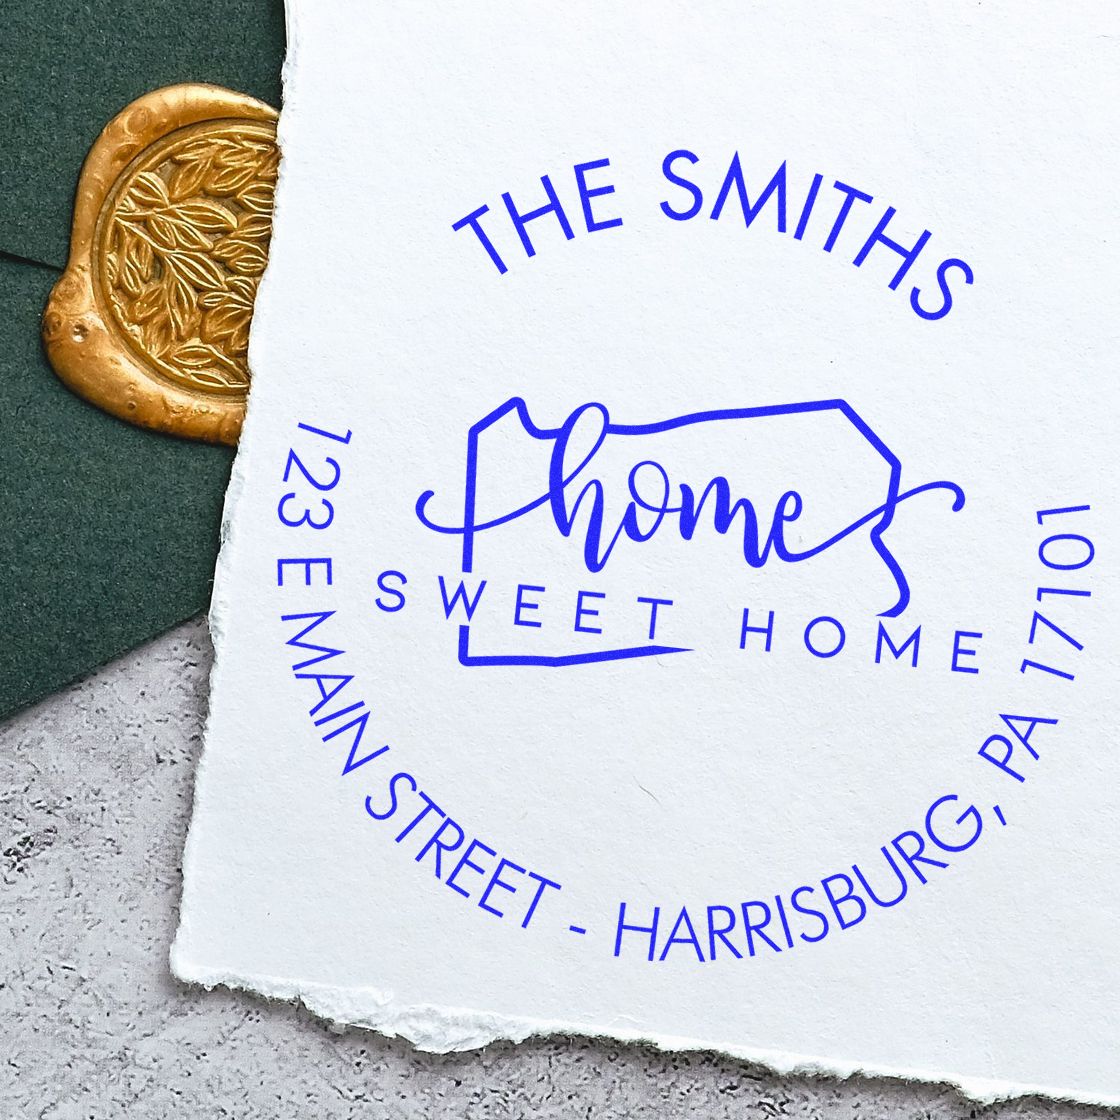 THE SMITHS
home
SWEET HOME
123 E MAIN STREET - HARRISBURG, PA 17101